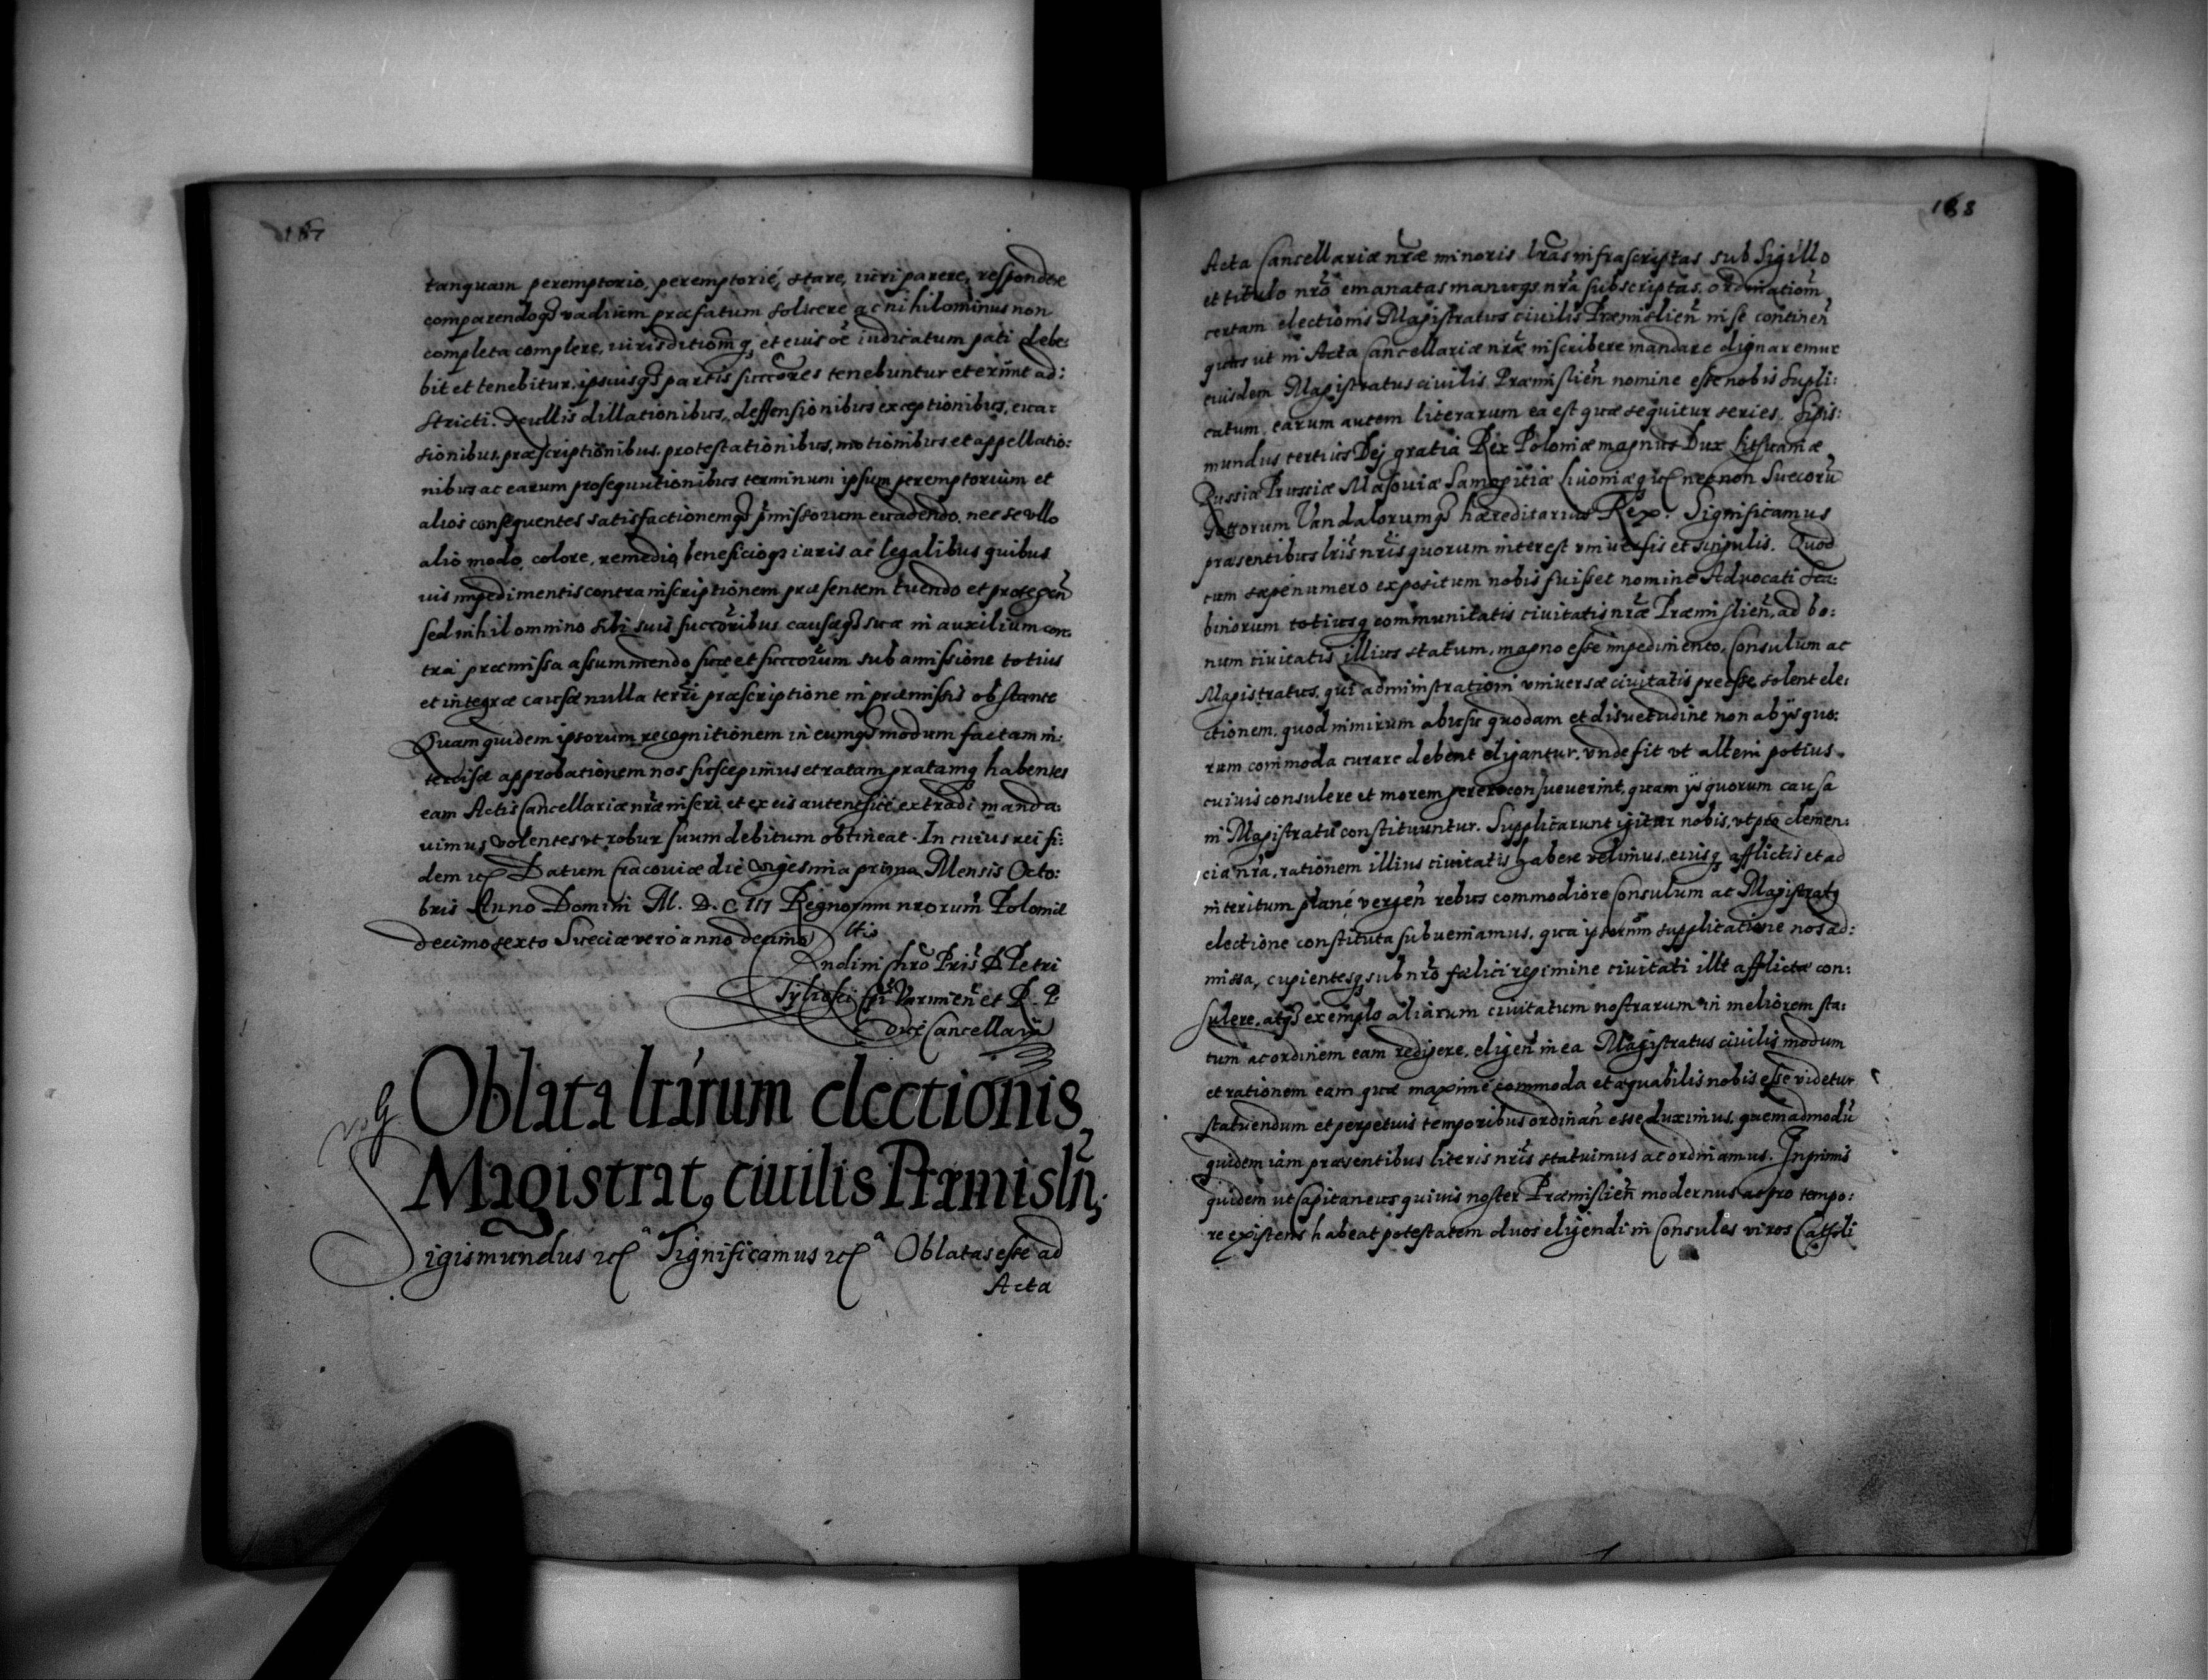 187
tanquam peremptorio, peremptorié, stare, iuri parere, respondere
comparendoq vadium præfatum soluere ac nihilominus non
completa complere, iurisditiomq et eius oe iudicatum pati debe:
bit et tenebitur, ipsiusq partis succores tenebuntur et erunt ad:
stricti. Nullis dillationibus, deffensionibus exceptionibus, eua:
sionibus, præscriptionibus, protestationibus, motionibus et appellatio:
nibus ac earum prosequutionibus terminum ipsum peremptorium et
alios consequentes satisfactionemq pmissorum euadendo, nec se vllo
alio modo, colore, remedio, beneficioq iuris ac legalibus quibus
uis impedimentis contra inscriptionem præsentem tuendo et protegen
sed nihil omnino sibi suis succoribus causæq suæ in auxilium con:
tra præmissa assummendo suæ et succorum sub amissione totius
et integræ causæ nulla terri præscriptione in præmissis obstante
Quam quidem ipsorum recognitionem in eumq modum factam in:
terdisæ approbationem nos suscepimus et ratam gratamq habentes
eam Actis Cancellariæ nræ inseri et ex eis autentice extradi manda:
uimus, volentes vt robur suum debitum obtineat. In cuius rei fi:
dem etc Datum Cracouiæ die vigesima prima Mensis Octo:
bris Anno Domini M. D. C III Regnorum nrorum Poloniæ
decimosexto Sueciæ vero anno decimo
ltio
Andi in chro Pris D Petri
Tylicki Epi Varmien et R. P.
vice Cancellarij
Oblata lrarum electionis
Magistratq ciuilis Præmisln
Sigismundus etc Significamus etc Oblatas esse ad
Acta
188
Acta Cancellariæ nræ minoris lras infrascriptas sub Sigillo
et titulo nro emanatas manuq nra subscriptas, ordinatiom
certam electionis Magistratus ciuilis Præmislien in se continen
quas ut in Acta Cancellariæ nræ inscribere mandare dignaremur
eiusdem Magistratus ciuilis Præmislien nomine esse nobis supli:
catum, earum autem literarum ea est quæ sequitur series. Sigis:
mundus tertius Dej gratia Rex Poloniæ magnus Dux Lithuaniæ
Russiæ Prussiæ Masouiæ Samogitiæ Liuoniæq etc nec non Suecoru
Gottorum Vandalorumq hæreditarius Rex. Significamus
præsentibus lris nris quorum interest vniuersis et singulis. Quod
cum sæpenumero expositum nobis fuisset nomine Aduocati Sca:
binorum totiusq communitatis ciuitatis nræ Præmislien, ad bo:
num ciuitatis illius statum, magno esse impedimento, Consulum ac
Magistratus, qui administrationi vniuersæ ciuitatis preesse solent ele:
ctionem, quod nimirum abusu quodam et disuetudine non ab ijs quo:
rum commoda curare debent eligantur, vnde fit vt alteri potius
cuiuis consulere et morem gerere consueuerint, quam ijs quorum causa
in Magistratu constituuntur. Supplicarunt igitur nobis, vt pro clemen:
cia nra, rationem illius ciuitatis habere velimus, eiusq afflictis et ad
interitum plané vergen rebus commodiore Consulum ac Magistratq
electione constituta subueniamus, qua ipsorum supplicatione nos ad:
missa, cupientesq sub nro fælici regimine ciuitati illi afflictæ con:
sulere, atq exemplo aliarum ciuitatum nostrarum in meliorem sta:
tum ac ordinem eam redigere, eligen in ea Magistratus ciuilis modum
et rationem eam quæ maximé commoda et æquabilis nobis esse videtur
statuendum et perpetuis temporibus ordinan esse duximus, quemadmodu
quidem iam præsentibus literis nris statuimus ac ordinamus. Inprimis
quidem ut Capitaneus quiuis noster Præmislien modernus ac pro tempo:
re existens habeat potestatem duos eligendi in Consules viros Catholi